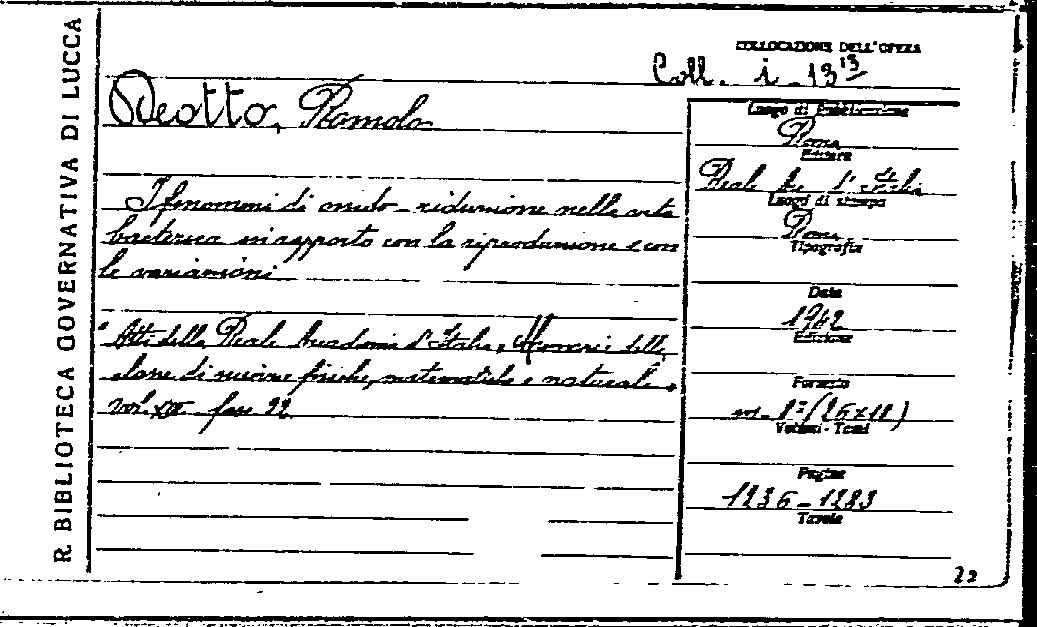 R. BIBLIOTECA GOVERNATIVA DI LUCCA
COLLOCAZIONE DELL'OPERA
Coll. i - 13 13
Deotto, Romolo
I fenomeni di ossido-riduzione nella vita
batterica in rapporto con la riproduzione e con
le variazioni
"Atti della Reale Accademia d'Italia, Memorie della
classe di scienze fisiche, matematiche e naturali"
vol. XIII fasc 22
Luogo di Pubblicazione
Roma
Editore
Reale Acc. d'Italia
Luogo di stampa
Roma
Tipografia
Data
1942
Edizione
Formato
in-8° (26x18)
Volumi - Tomi
Pagine
1236-1283
Tavole
22